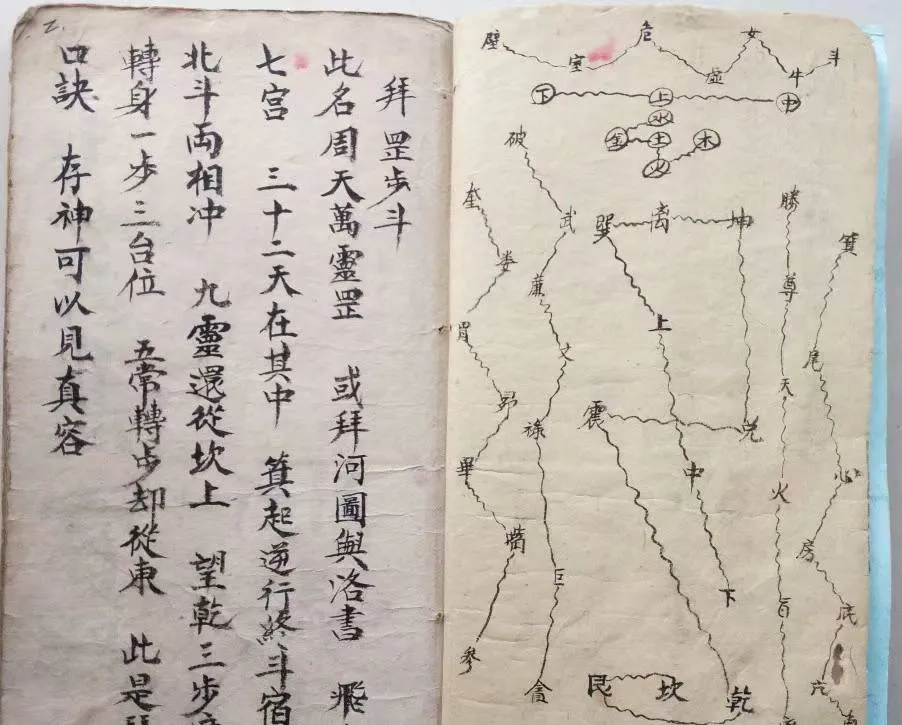 拜罡步斗
此名周天萬靈罡 或拜河圖與洛書 飛
七宫 三十二天在其中 箕起逆行終斗宿
北斗両相冲 九靈還從坎上 望乾三步
轉身一步三台位 五常轉步却從東 此是
口訣 存神可以見真容
壁 室 危 虚 女 牛 斗
下 上 中
水
金 土 木
火
奎 娄 胃 昴 畢 嘴 参
破 武 廉 文 禄 巨 貪
巽 離 坤
上
震 兌
中
下
艮 坎 乾
勝 尊 天 火 百
箕 尾 心 房 底 亢